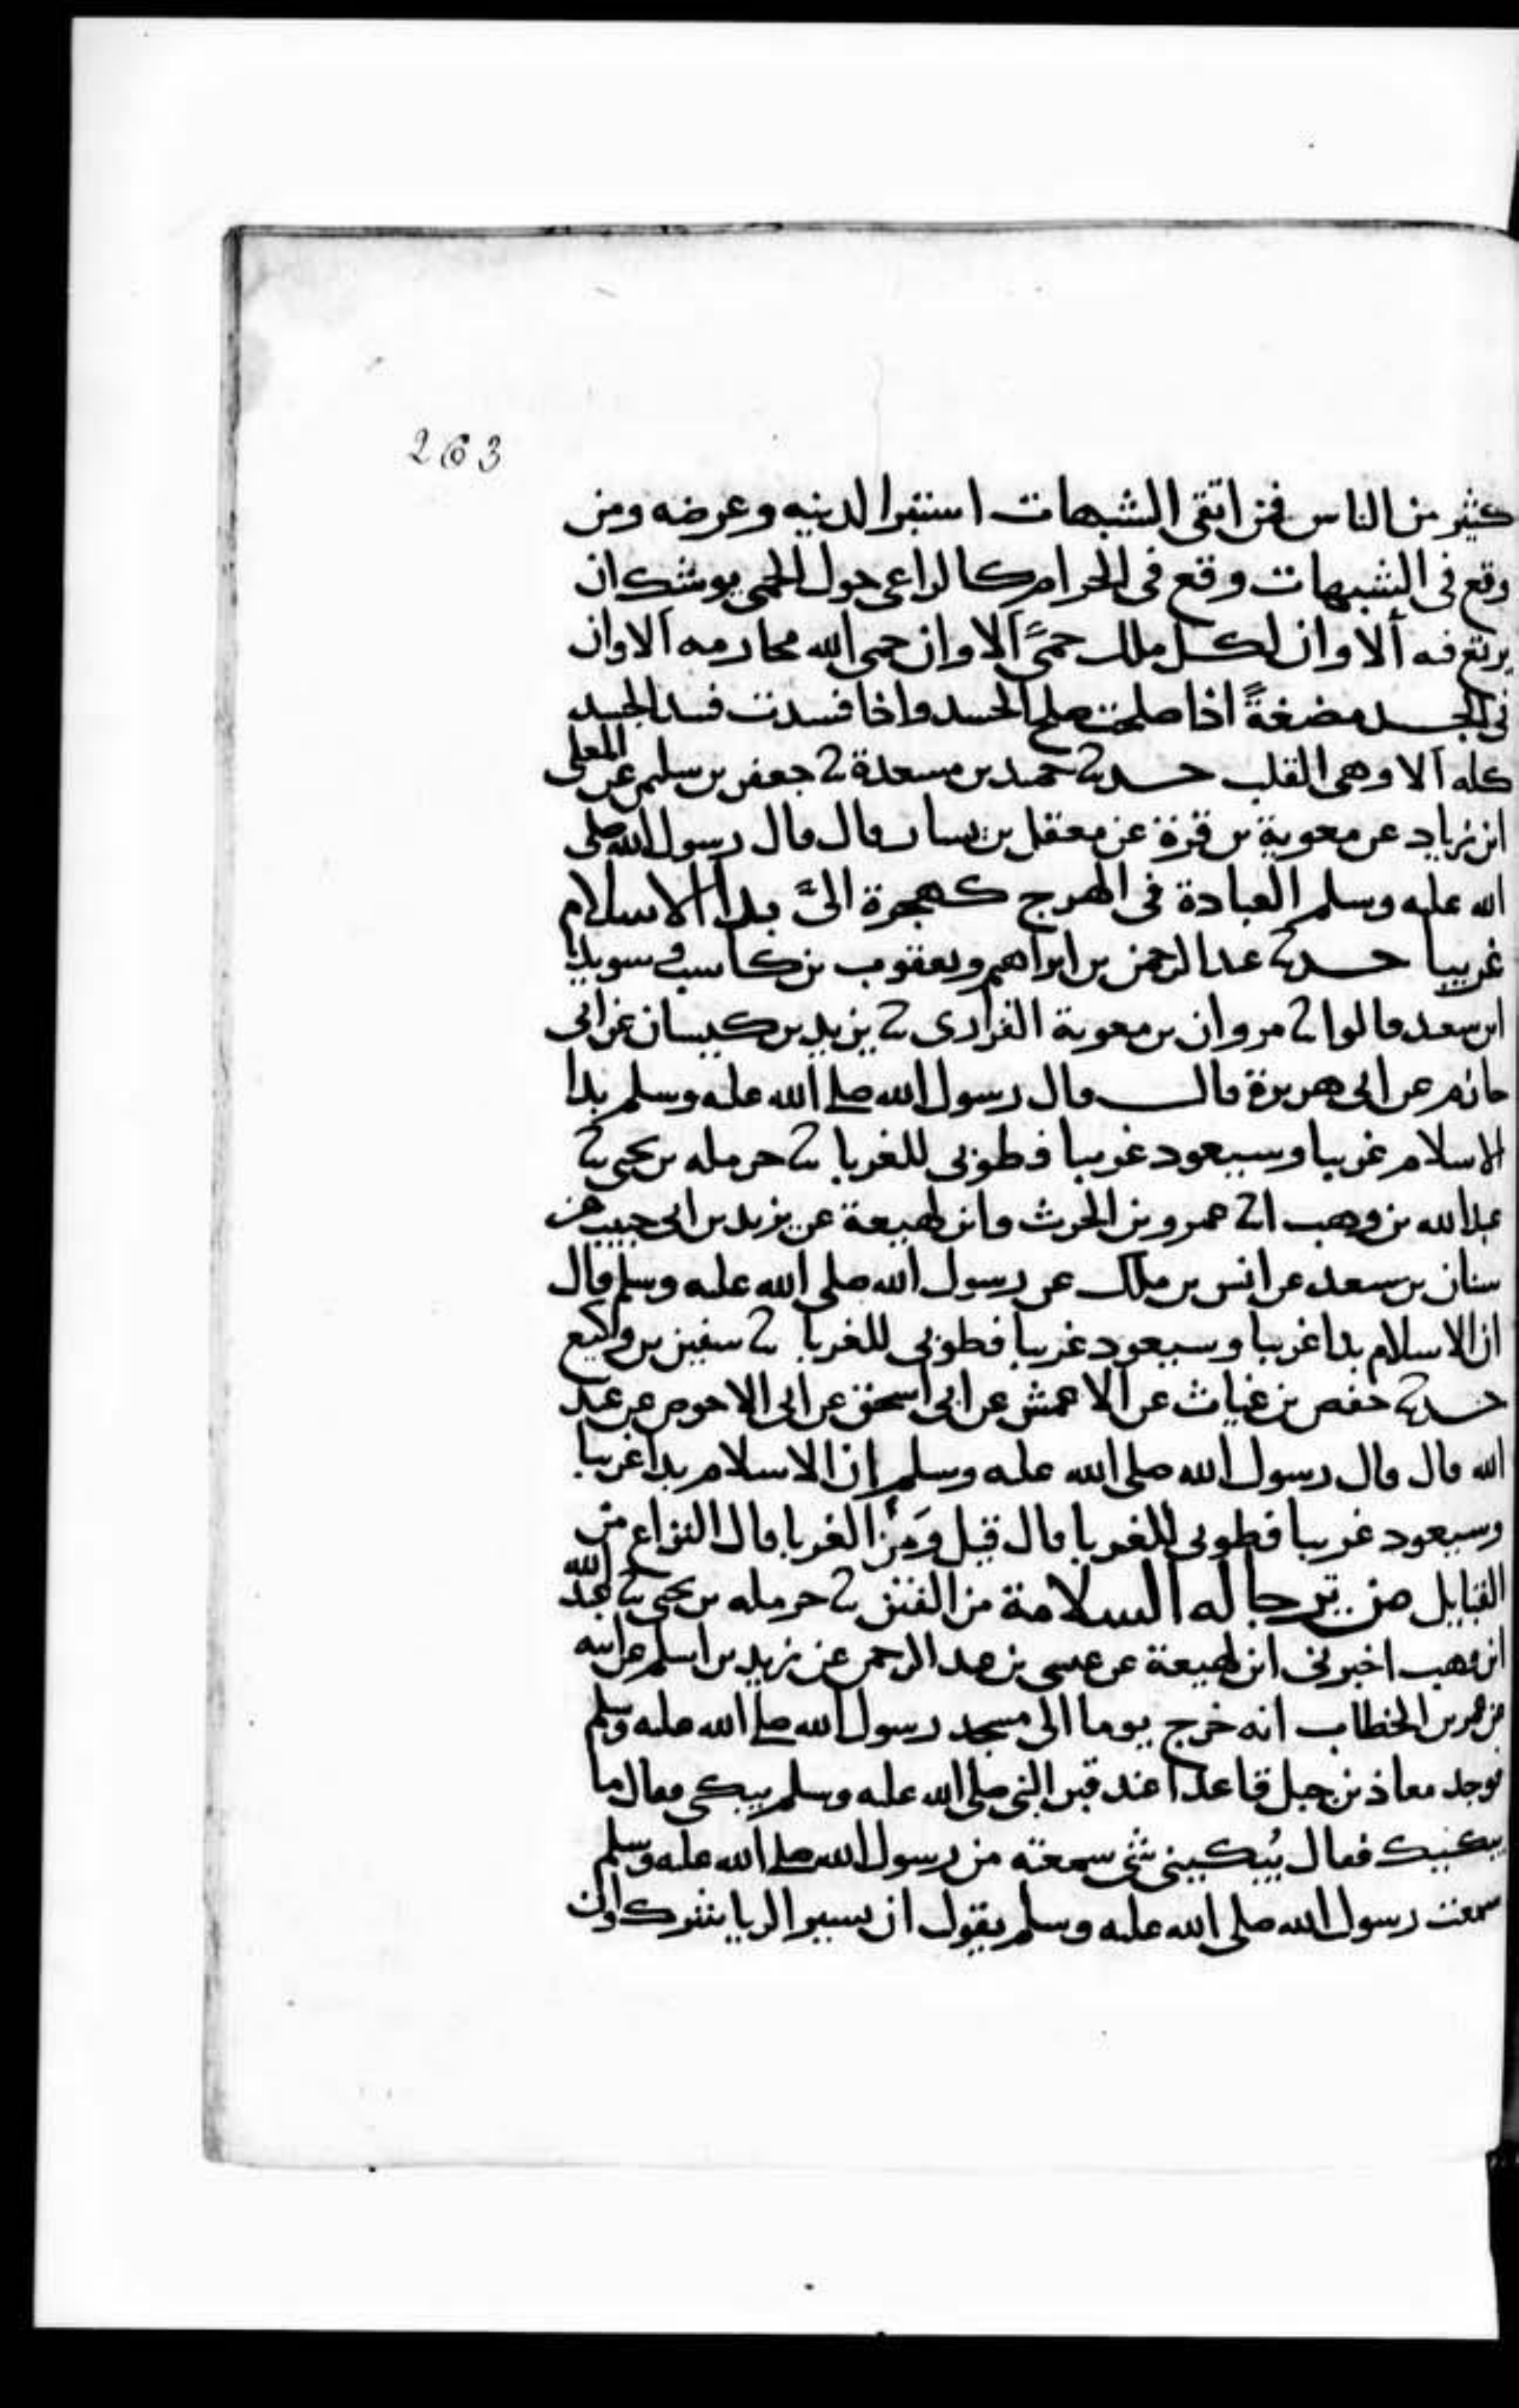 263
كثير من الناس فمن اتقى الشبهات استبرا لدينه وعرضه ومن
وقع فى الشبهات وقع فى الحرام كالراعى حول الحمى يوشك ان
يرتع فيه ألا وان لكل ملك حمًى ألا وان حمى الله محارمه ألا وان
فى الجسد مضغةً اذا صلحت صلح الجسد واذا فسدت فسد الجسد
كله ألا وهى القلب حدثنا حميد بن مسعدة ثنا جعفر بن سليمن عن المعلى
ابن زياد عن معوية بن قرة عن معقل بن يسار قال قال رسول الله صلى
الله عليه وسلم العبادة فى الهرج كهجرة الىَّ بدأ الاسلام
غريبا حدثنا عبد الرحمن بن ابراهيم ويعقوب بن كاسب وسويد
ابن سعد قالوا ثنا مروان بن معوية الفزارى ثنا يزيد بن كيسان عن ابى
حازم عن ابى هريرة قال قال رسول الله صلى الله عليه وسلم بدا
الاسلام غريبا وسيعود غريبا فطوبى للغربا ثنا حرمله بن يحيى ثنا
عبد الله بن وهب انا عمرو بن الحرث وابن لهيعة عن يزيد بن ابى حبيب عن
سنان بن سعد عن انس بن ملك عن رسول الله صلى الله عليه وسلم قال
ان الاسلام بدا غريبا وسيعود غريبا فطوبى للغربا ثنا سفين بن وكيع
حدثنا حفص بن غياث عن الاعمش عن ابى اسحق عن ابى الاحوص عن عبد
الله قال قال رسول الله صلى الله عليه وسلم ان الاسلام بدا غريبا
وسيعود غريبا فطوبى للغربا قال قيل ومَن الغربا قال النزاع من
القبايل من ترجا له السلامة من الفتن ثنا حرمله بن يحيى ثنا عبد الله
ابن وهب اخبرنى ابن لهيعة عن عيسى بن عبد الرحمن عن زيد بن اسلم عن ابيه
عن عمر بن الخطاب انه خرج يوما الى مسجد رسول الله صلى الله عليه وسلم
فوجد معاذ بن جبل قاعدا عند قبر النبى صلى الله عليه وسلم يبكى فقال ما
يبكيك فقال يُبكينى شى سمعته من رسول الله صلى الله عليه وسلم
سمعت رسول الله صلى الله عليه وسلم يقول ان يسير الريا شرك وان